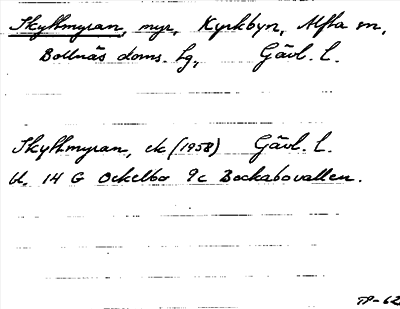 Skyttmyran, myr, Kyrkbyn, Alfta sn,
Bollnäs doms. hg, Gävl. l.
Skyttmyran, ek (1958) Gävl. l.
bl. 14 G Ockelbo 9c Bockabovallen.
TP-62